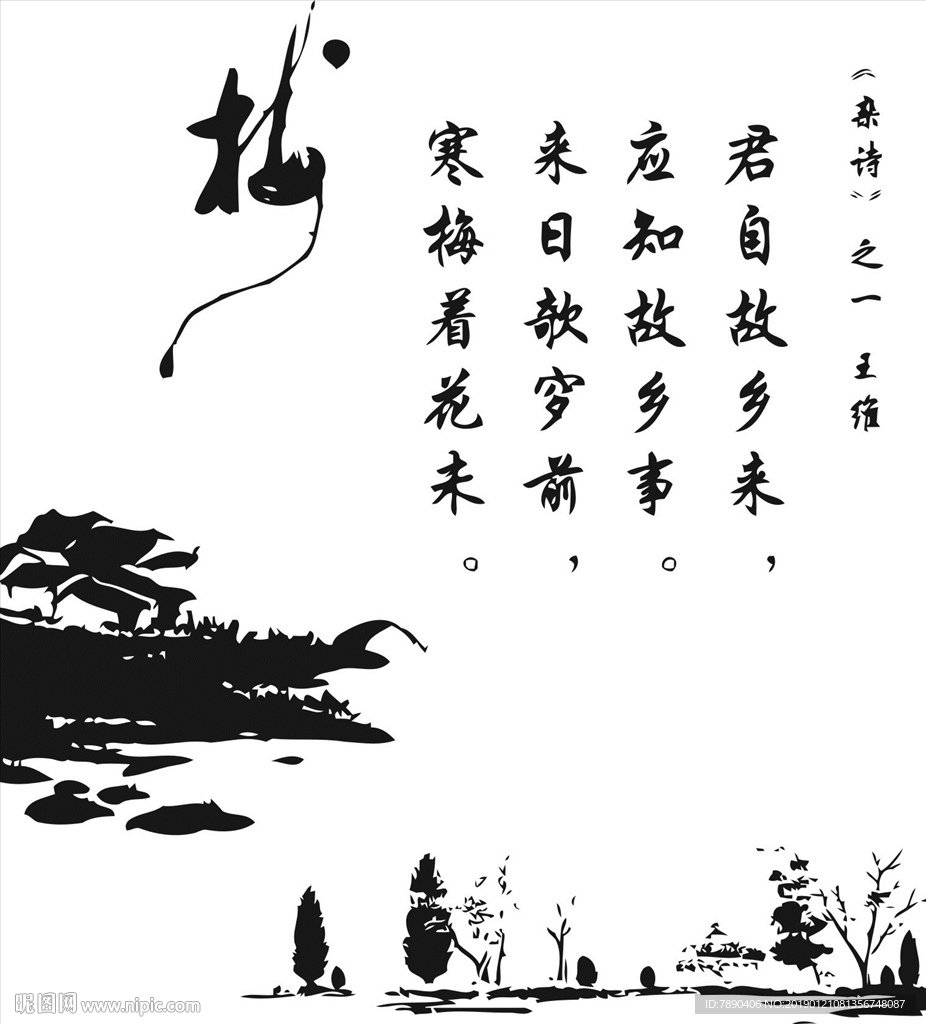 《杂诗》之一 王维
君自故乡来，
应知故乡事。
来日欹穸前，
寒梅着花未。
梅
昵图网 www.nipic.com
ID:7890406 NO:20190121081356748087